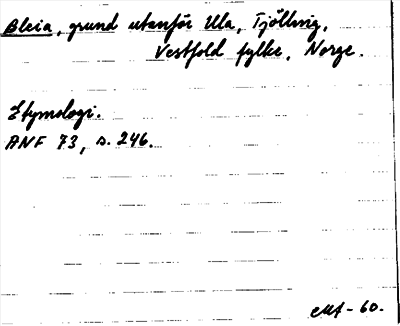 Bleia, grund utanför Ula, Tjölling,
Vestfold fylke, Norge.
Etymologi.
ANF 73, s. 246.
-60.